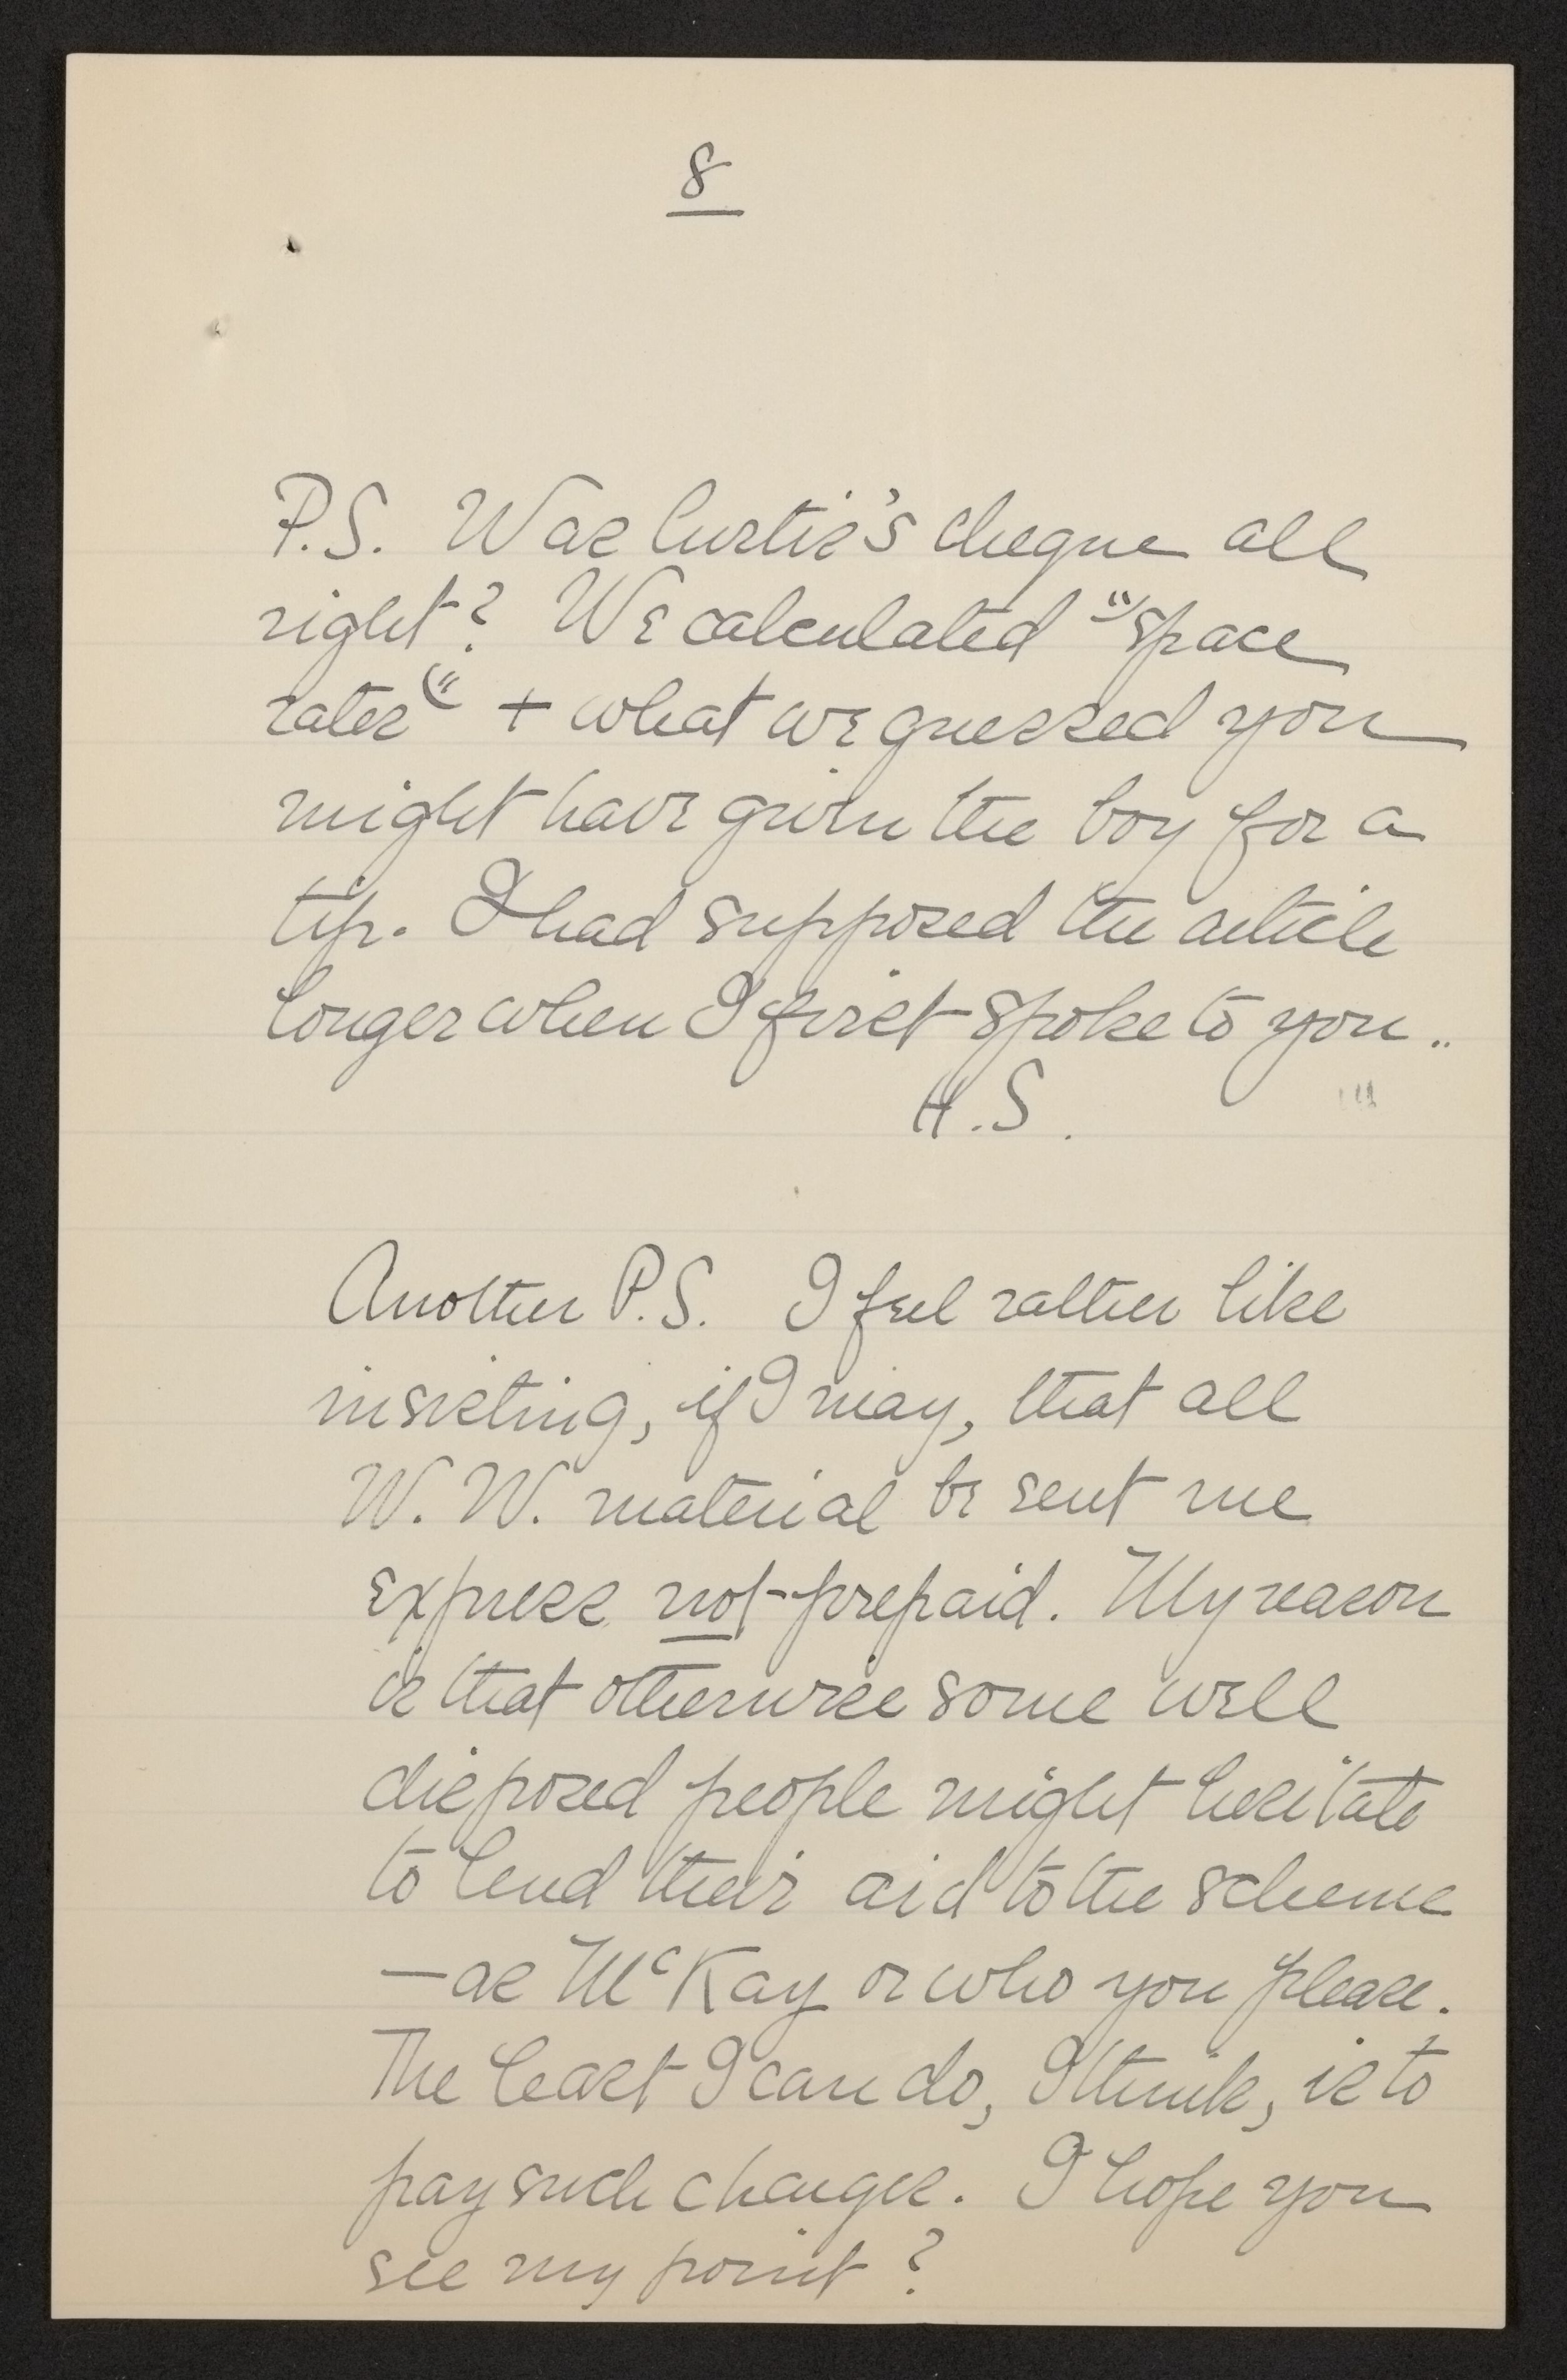 8
P.S. Was Curtis's cheque all
right? We calculated "space
rates" + what we guessed you
might have given the boy for a
tip. I had supposed the article
longer when I first spoke to you..
H.S.
Another P.S. I feel rather like
insisting, if I may, that all
W. W. material be sent me
express not prepaid. My reason
is that otherwise some well
disposed people might hesitate
to lend their aid to the scheme
— as McKay or who you please.
The least I can do, I think, is to
pay such charges. I hope you
see my point?